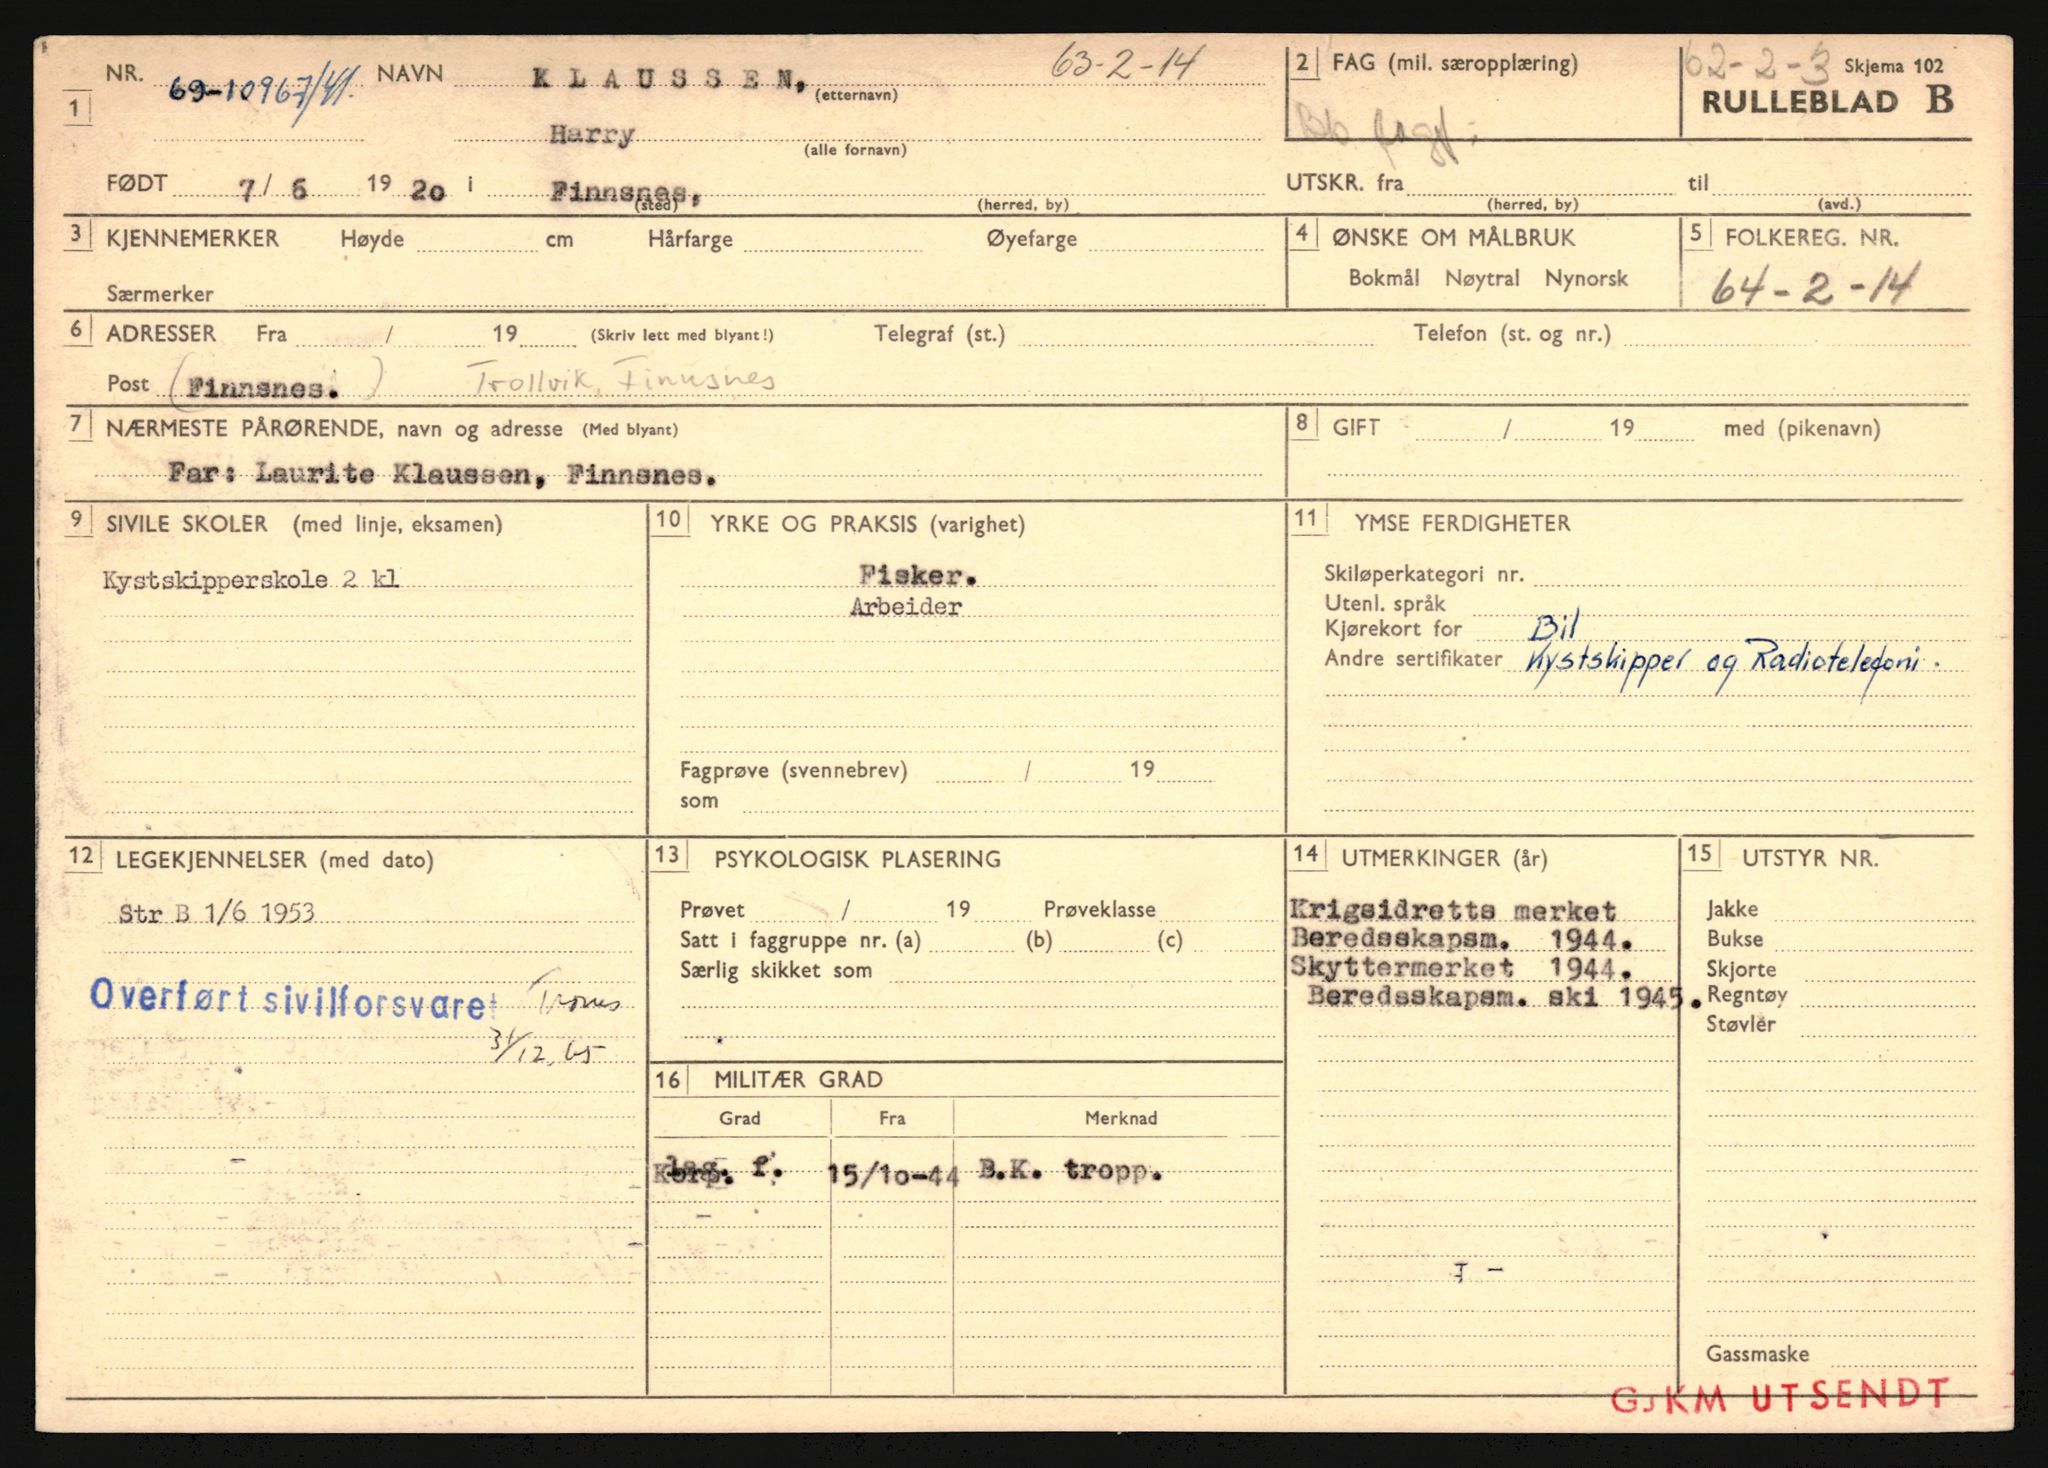 NR. 69-10967/41. NAVN K L A U S S E N, (etternavn) 63-2-14
1
Harry
(alle fornavn)
FØDT 7/6 1920 i Finnsnes,
(sted) (herred, by)
2 FAG (mil. særopplæring)
62-2-3 Skjema 102
RULLEBLAD B
UTSKR. fra til
(herred, by) (avd.)
3 KJENNEMERKER Høyde cm Hårfarge Øyefarge
Særmerker
4 ØNSKE OM MÅLBRUK
Bokmål Nøytral Nynorsk
5 FOLKEREG. NR.
64-2-14
6 ADRESSER Fra / 19 (Skriv lett med blyant!) Telegraf (st.) Telefon (st. og nr.)
Post (Finnsnes.) Trollvik, Finnsnes
7 NÆRMESTE PÅRØRENDE, navn og adresse (Med blyant)
Far: Laurite Klaussen, Finnsnes.
8 GIFT / 19 med (pikenavn)
9 SIVILE SKOLER (med linje, eksamen)
Kystskipperskole 2 kl
10 YRKE OG PRAKSIS (varighet)
Fisker.
Arbeider
Fagprøve (svennebrev) / 19
som
11 YMSE FERDIGHETER
Skiløperkategori nr.
Utenl. språk
Kjørekort for Bil
Andre sertifikater Kystskipper og Radiotelefoni.
12 LEGEKJENNELSER (med dato)
Str B 1/6 1953
Overført sivilforsvaret Troms
31/12.65
13 PSYKOLOGISK PLASERING
Prøvet / 19 Prøveklasse
Satt i faggruppe nr. (a) (b) (c)
Særlig skikket som
14 UTMERKINGER (år)
Krigsidretts merket
Beredsskapsm. 1944.
Skyttermerket 1944.
Beredsskapsm. ski 1945.
15 UTSTYR NR.
Jakke
Bukse
Skjorte
Regntøy
Støvler
Gassmaske
16 MILITÆR GRAD
Grad Fra Merknad
lag. f. 15/10-44 B.K. tropp.
GJKM UTSENDT